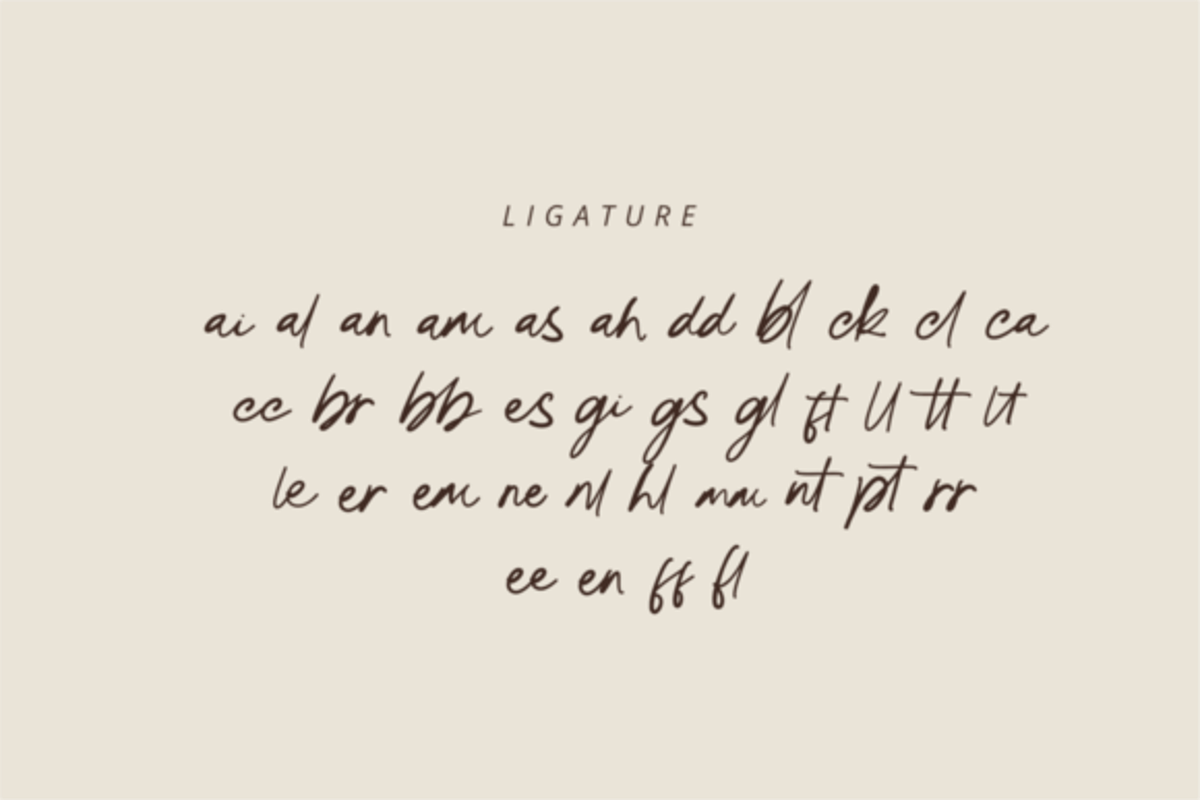 LIGATURE
ai al an am as ah dd bl ck cl ca
cc br bb es gi gs gl ft ll tt lt
le er em ne nl hl mm nt pt rr
ee en ff fl